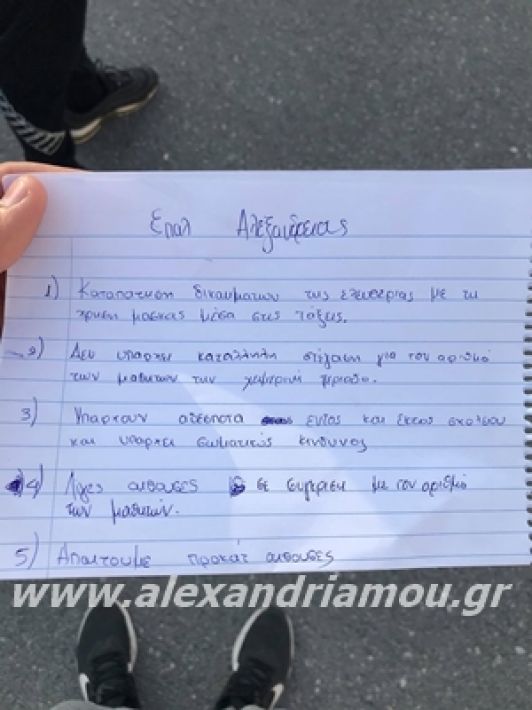 Επαλ Αλεξανδρειας
1) Καταπατηση δικαιωματων της ελευθεριας με τη
χρηση μασκας μεσα στις τάξεις.
2) Δεν υπαρχει καταλληλη στέγαση για τον αριθμό
των μαθητων την χειμερινή περιοδο.
3) Υπαρχουν αδέσποτα εντός και εκτος σχολειου
και υπαρχει σωματικός κινδυνος
4) Λίγες αιθουσες σε συγκριση με τον αριθμό
των μαθητών.
5) Απαιτουμε προκάτ αιθουσες
www.alexandriamou.gr